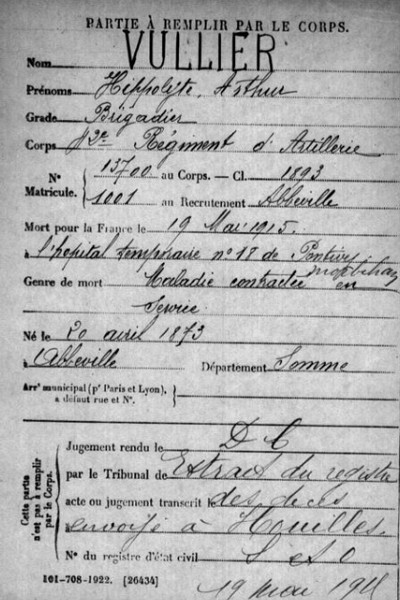 PARTIE À REMPLIR PAR LE CORPS.
Nom VULLIER
Prénoms Hippolyte, Arthur
Grade Brigadier
Corps Régiment d'Artillerie
N° Matricule. { 13700 au Corps. — Cl. 1893
1001 au Recrutement Abbeville
Mort pour la France le 19 Mai 1915.
à l'hopital temporaire n° 18 de Pontivy
Morbihan
Genre de mort Maladie contractée en
Service
Né le 20 avril 1873
à Abbeville Département Somme
Arrt municipal (pr Paris et Lyon), à défaut rue et N°. }
Cette partie n'est pas à remplir par le Corps.
Jugement rendu le D C
par le Tribunal de Extrait du registre
acte ou jugement transcrit le des décès
envoyé à Houilles.
N° du registre d'état civil S et O
101-708-1922. [26434]
19 mai